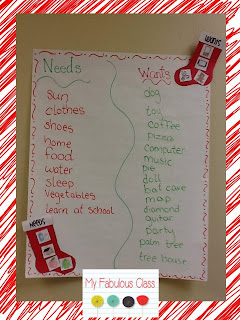 Needs
sun
clothes
shoes
home
food
water
sleep
vegetables
learn at school
NEEDS
WANTS
Wants
dog
toy
coffee
pizza
computer
music
pie
doll
bat cave
map
diamond
guitar
party
palm tree
tree house
My Fabulous Class